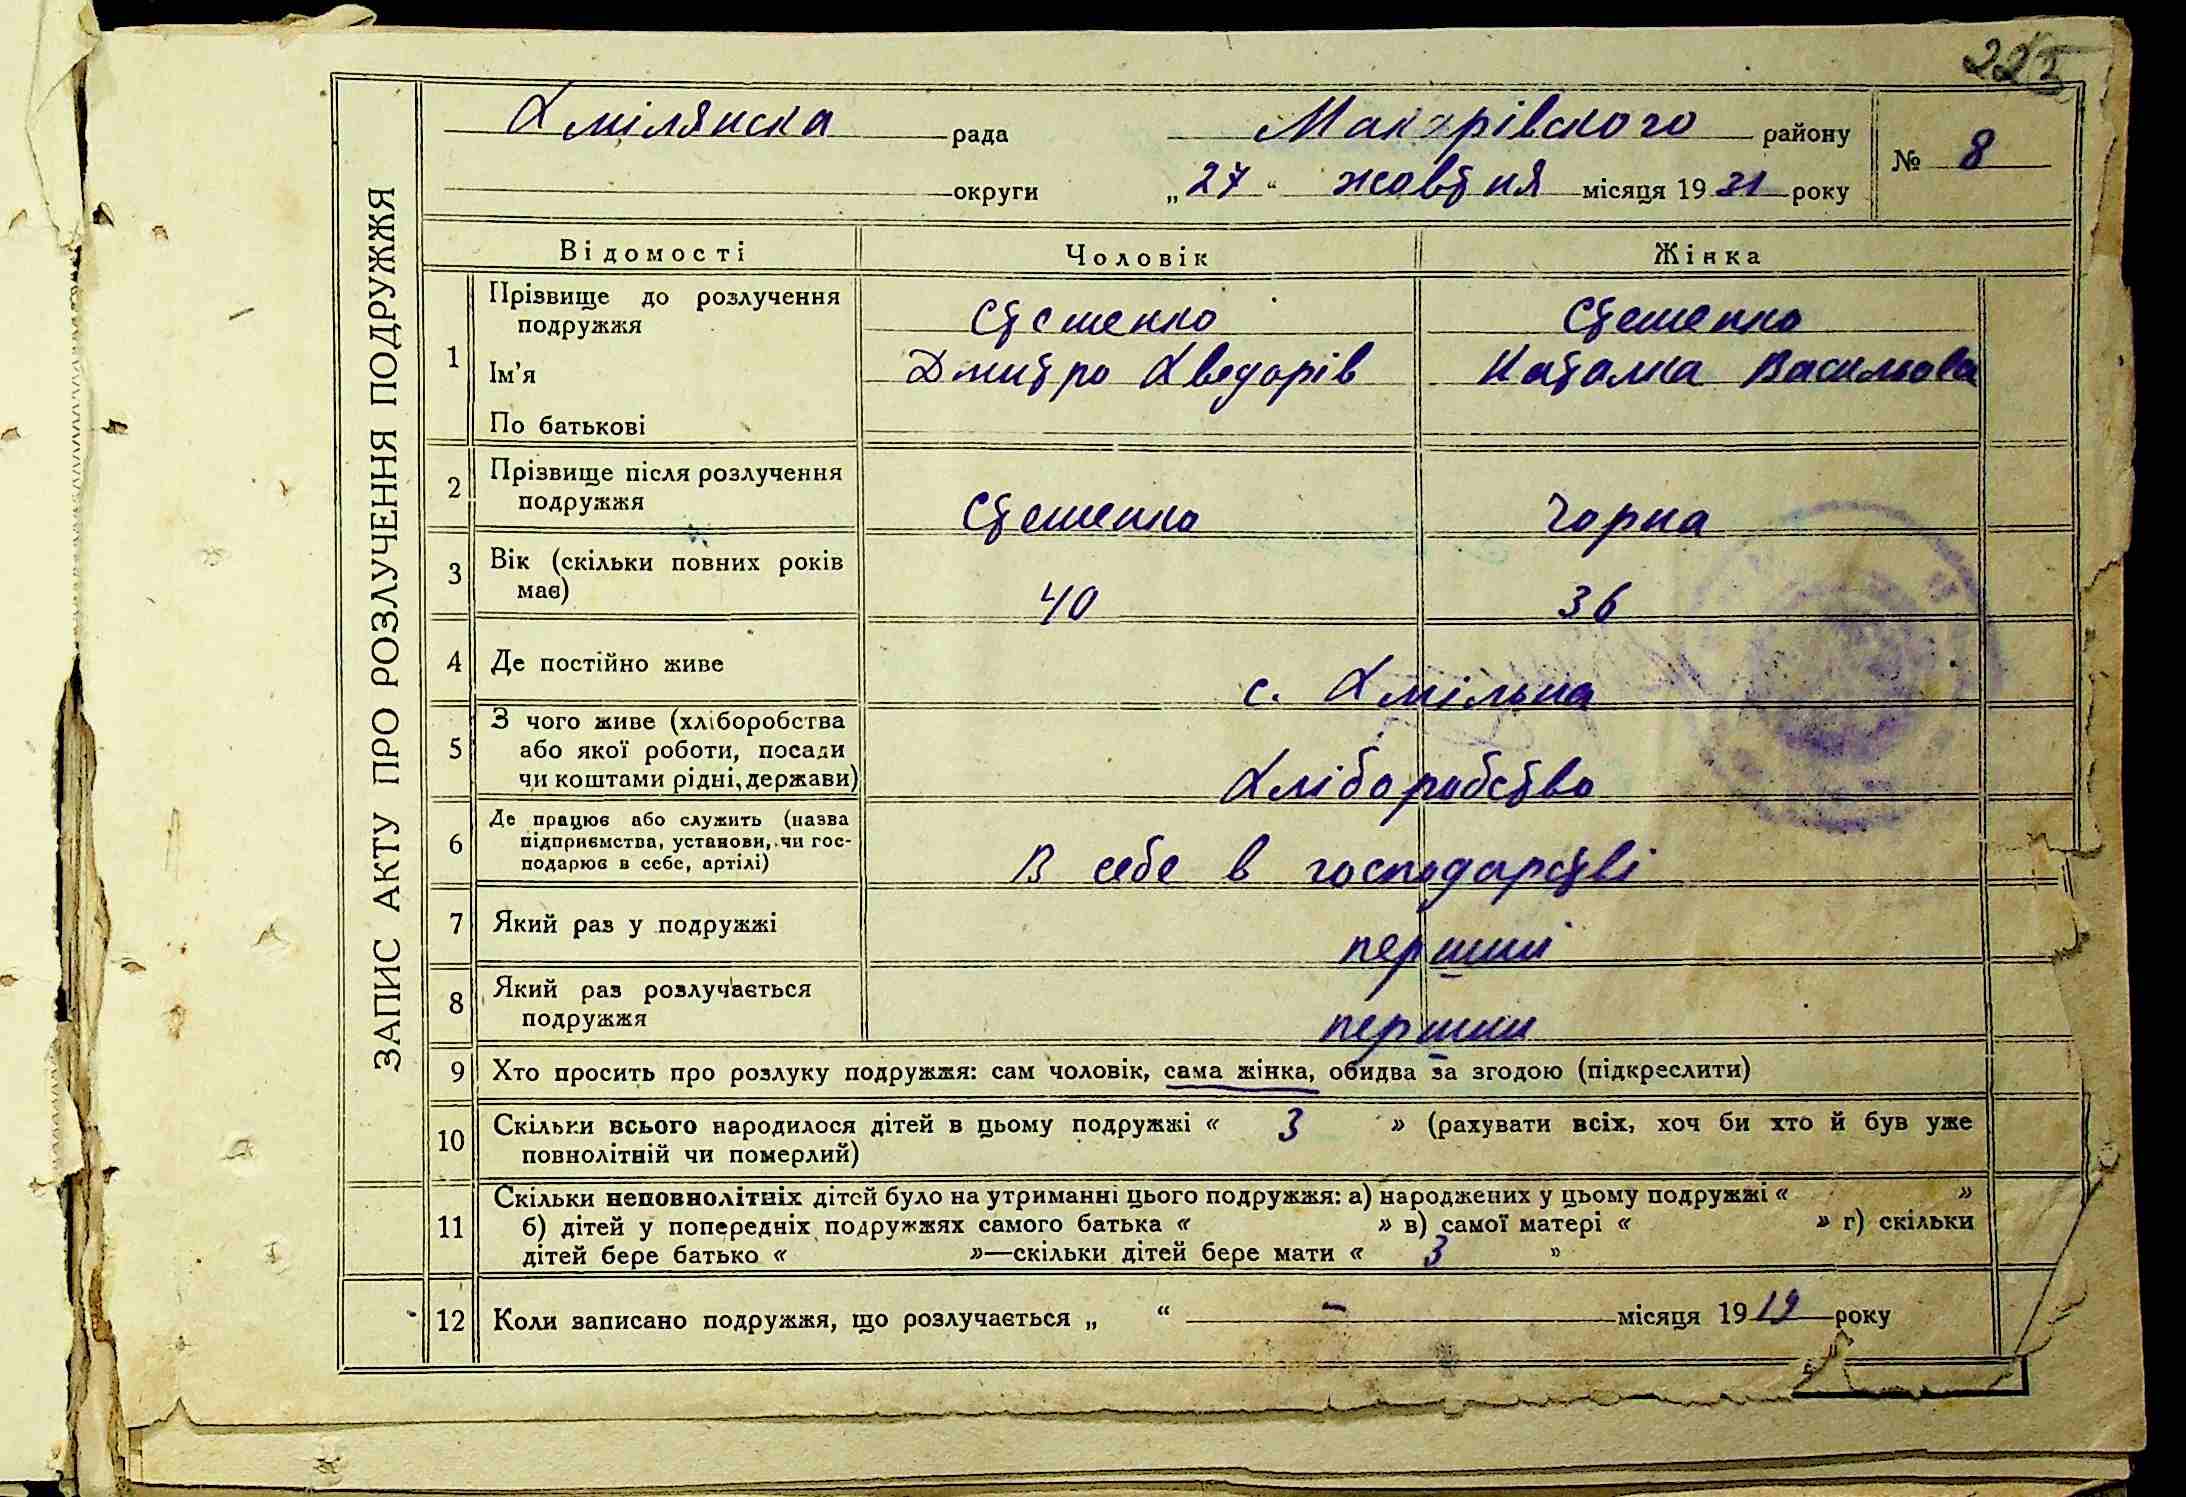 225
ЗАПИС АКТУ ПРО РОЗЛУЧЕННЯ ПОДРУЖЖЯ
Хмілянска рада Макарівского району
№ 8
округи „27“ жовтня місяця 1931 року
Відомості Чоловік Жінка
1 Прізвище до розлучення подружжя Стешенко Стешенко
Ім'я Дмитро Хведорів Наталка Васильова
По батькові
2 Прізвище після розлучення подружжя Стешенко Чорна
3 Вік (скільки повних років має) 40 36
4 Де постійно живе с. Хмільна
5 З чого живе (хліборобства або якої роботи, посади чи коштами рідні, держави) Хліборобство
6 Де працює або служить (назва підприємства, установи, чи господарює в себе, артілі) В себе в господарстві
7 Який раз у подружжі перший
8 Який раз розлучається подружжя перший
9 Хто просить про розлуку подружжя: сам чоловік, сама жінка, обидва за згодою (підкреслити)
10 Скільки всього народилося дітей в цьому подружжі « 3 » (рахувати всіх, хоч би хто й був уже
повнолітній чи померлий)
11 Скільки неповнолітніх дітей було на утриманні цього подружжя: а) народжених у цьому подружжі « »
б) дітей у попередніх подружжях самого батька « » в) самої матері « » г) скільки
дітей бере батько « »—скільки дітей бере мати « 3 »
12 Коли записано подружжя, що розлучається „ “ - місяця 1919 року